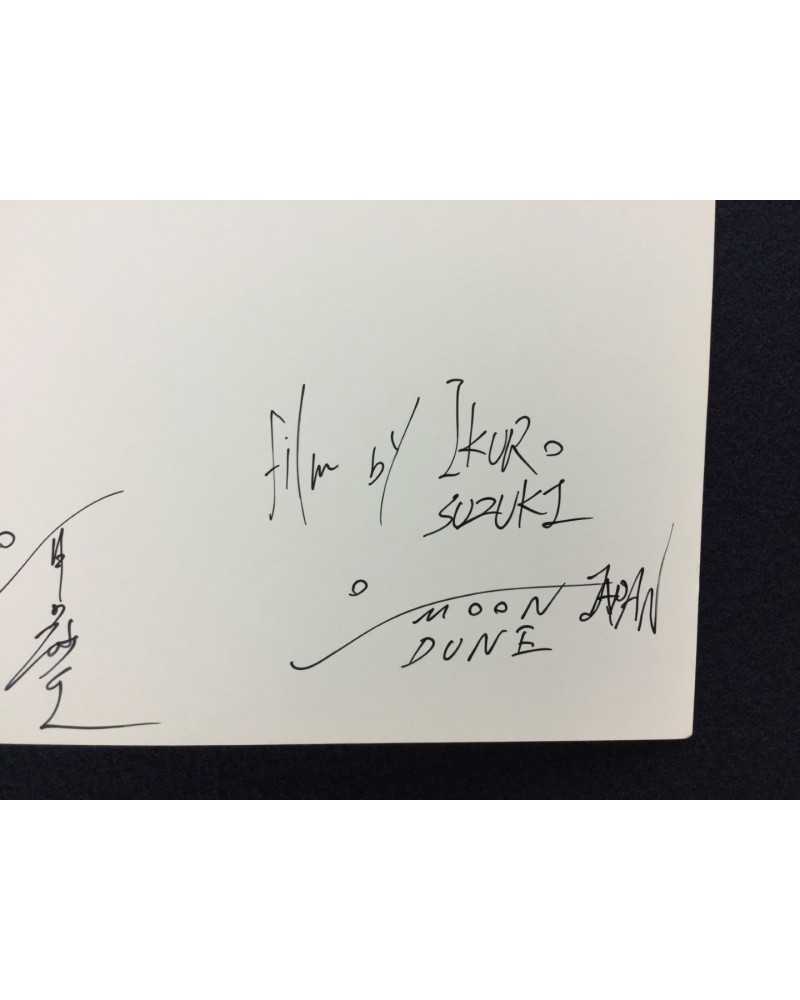 film by IKURO
SUZUKI
MOON JAPAN
DUNE